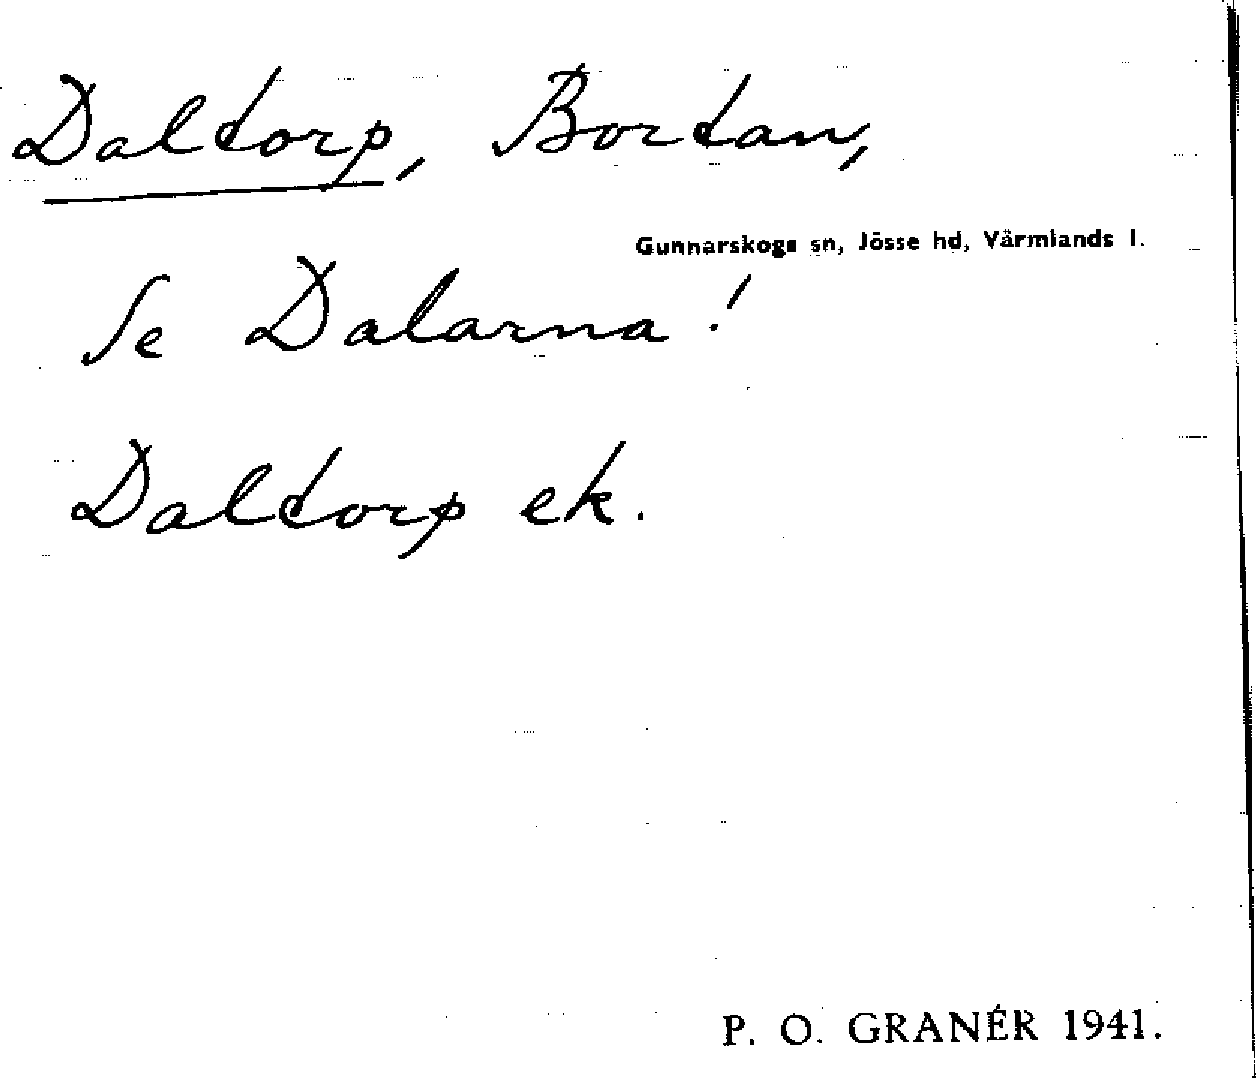 Daltorp, Bortan,
Gunnarskogs sn, Jösse hd, Värmlands l.
Se Dalarna!
Daltorp ek.
P. O. GRANÉR 1941.